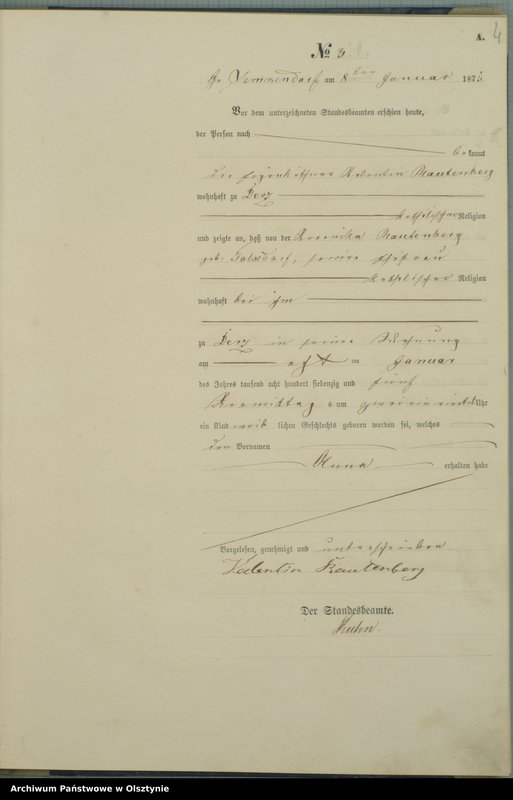 A.
4
№ 3
Gr. Lemkendorf am 8ten Januar 1875
Vor dem unterzeichneten Standesbeamten erschien heute,
der Person nach
bekannt
der Eigenkäthner Valentin Rautenberg
wohnhaft zu Derz
katholischer Religion
und zeigte an, daß von der Veronika Rautenberg
geb. seiner Ehefrau
katholischer Religion
wohnhaft bei ihm
zu Derz in seiner Wohnung
am acht ten Januar
des Jahres tausend acht hundert siebenzig und fünf
Vormittags um Uhr
ein Kind weib lichen Geschlechts geboren worden sei, welches
den Vornamen
Anna erhalten habe
Vorgelesen, genehmigt und unterschrieben.
Valentin Rautenberg
Der Standesbeamte.
Kuhn.
Archiwum Państwowe w Olsztynie